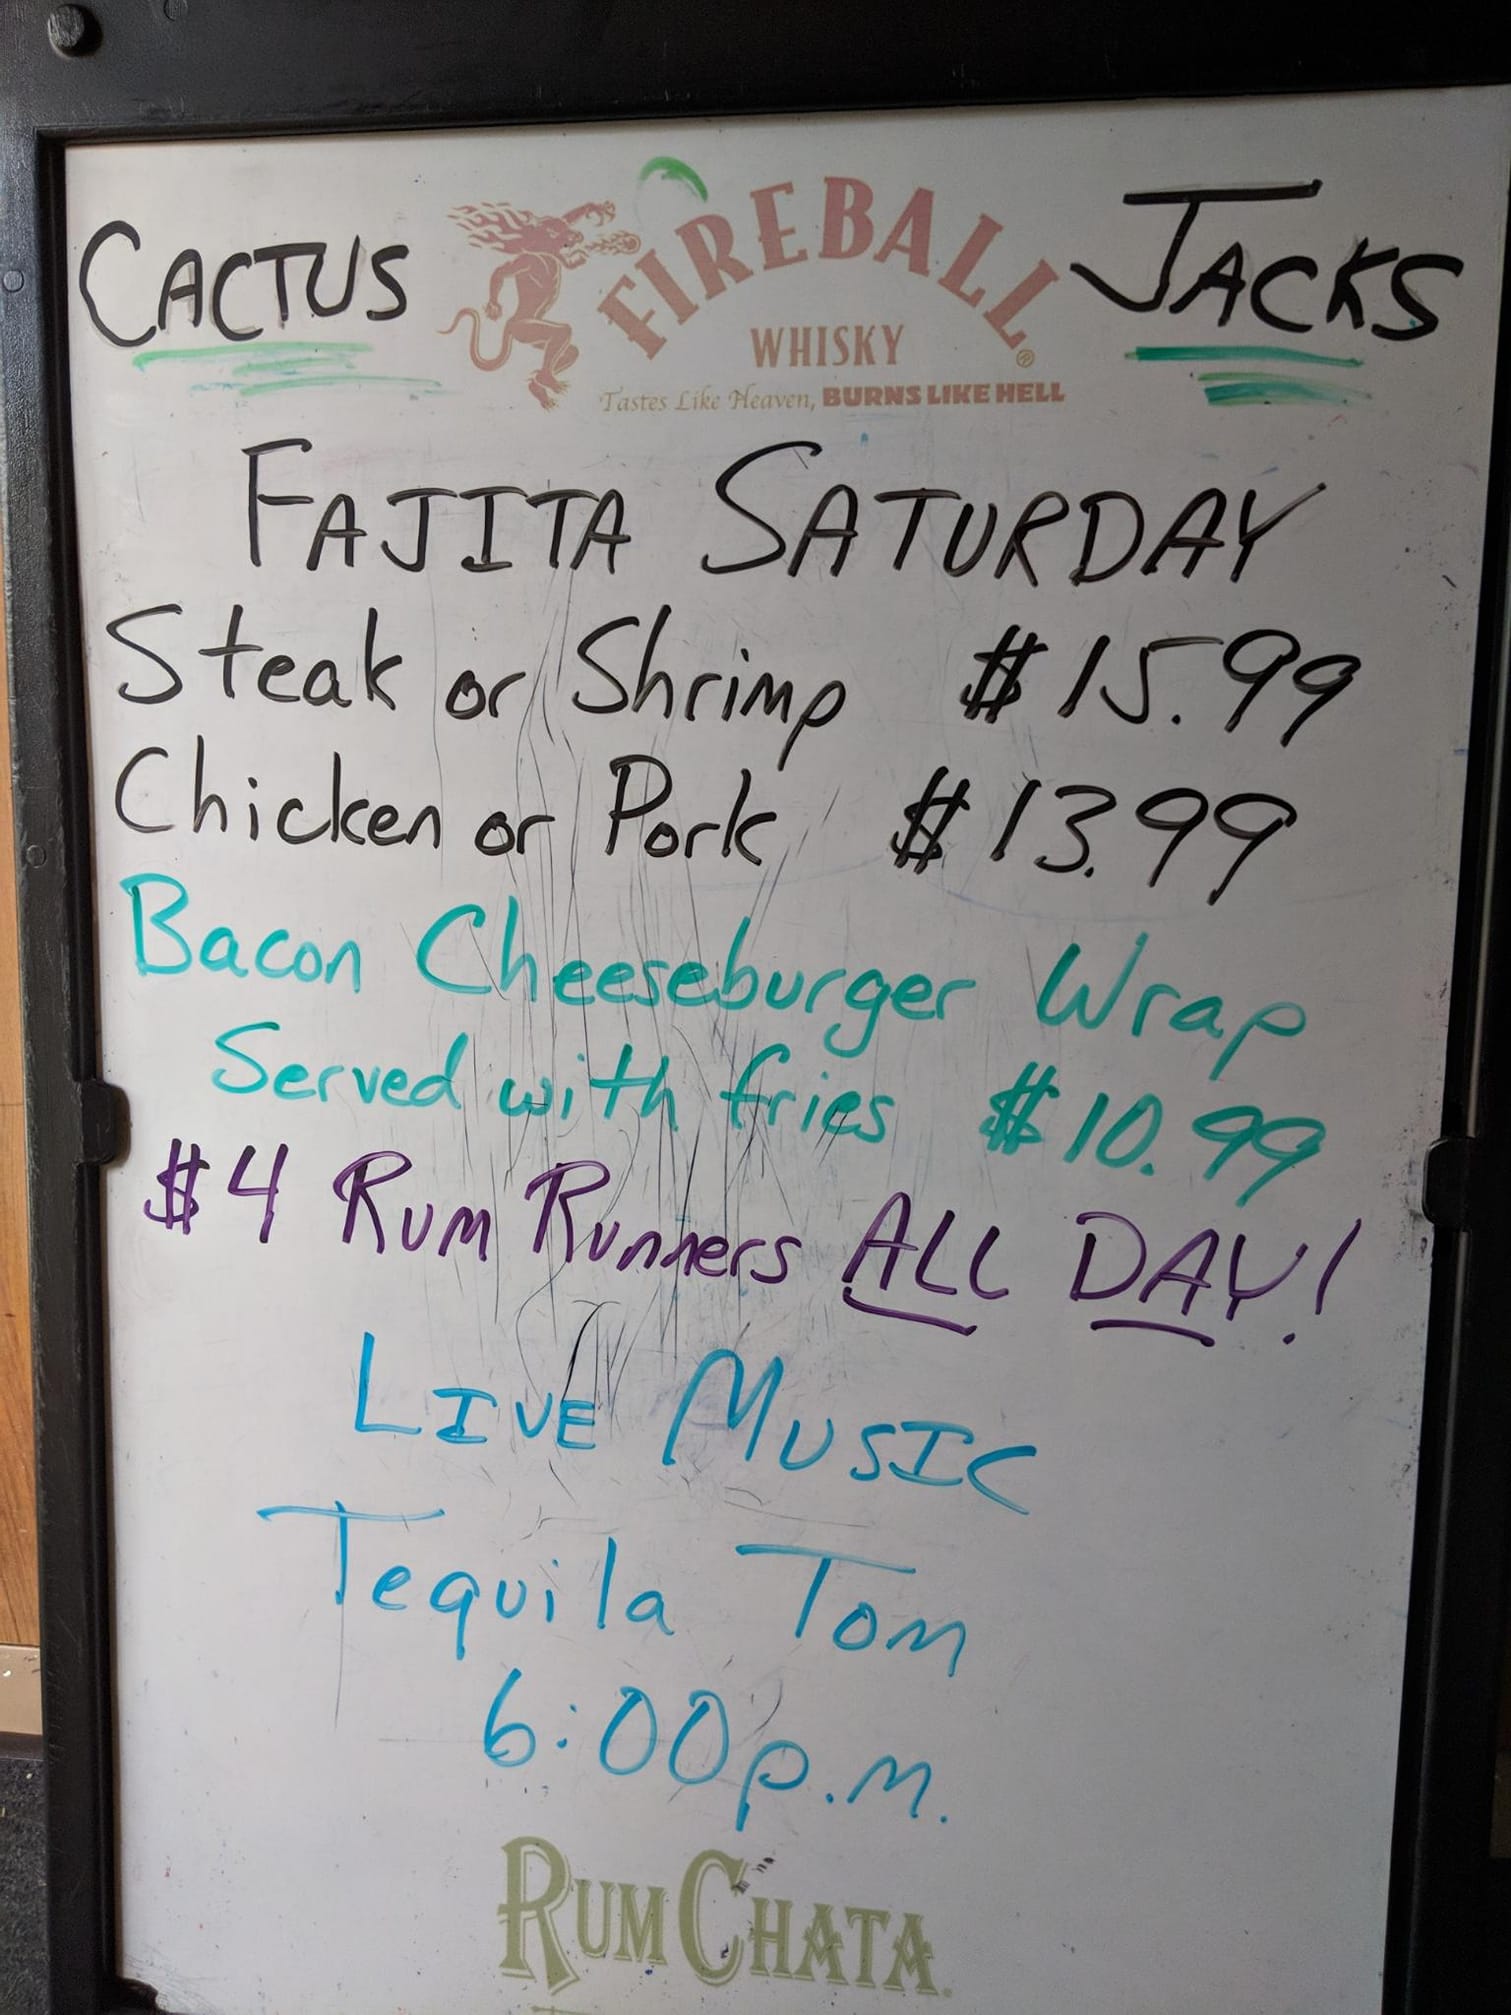 CACTUS FIREBALL JACKS
WHISKY
Tastes Like Heaven, BURNS LIKE HELL
FAJITA SATURDAY
Steak or Shrimp $15.99
Chicken or Pork $13.99
Bacon Cheeseburger Wrap
Served with fries $10.99
$4 Rum Runners ALL DAY!
LIVE MUSIC
Tequila Tom
6:00p.m.
RUMCHATA